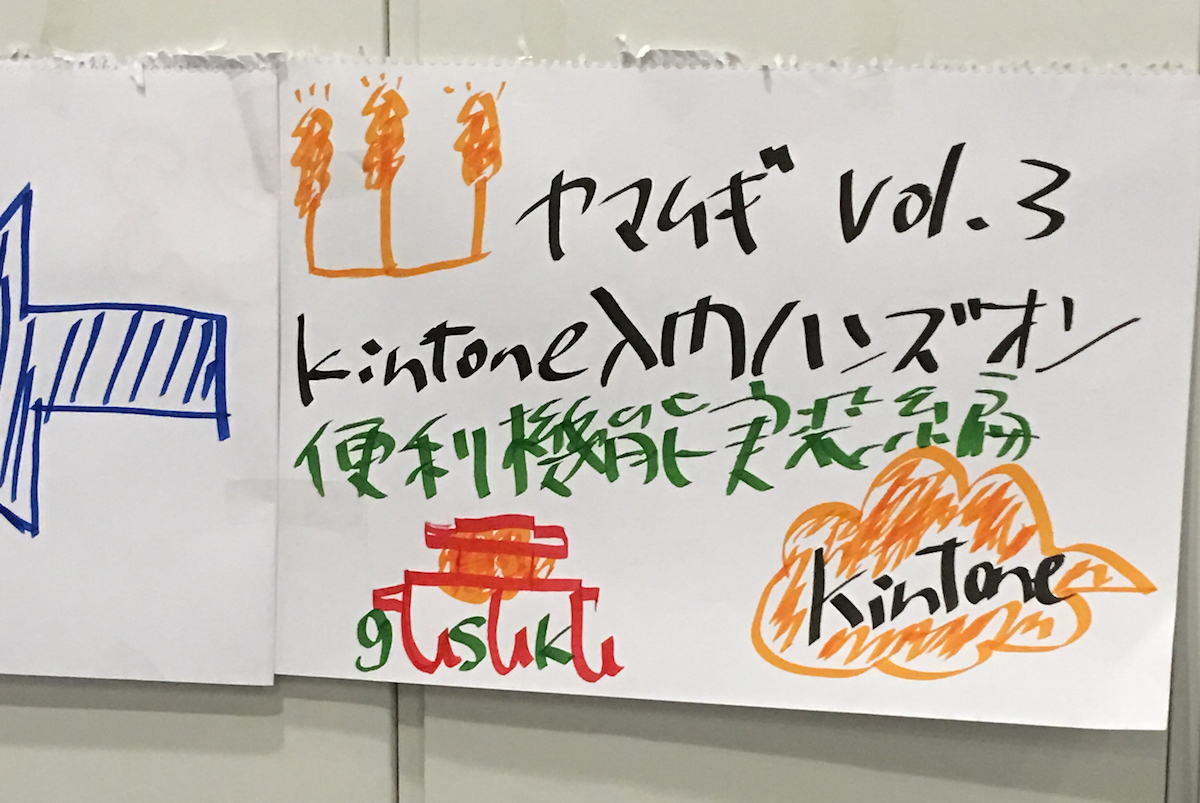 ヤマムギ vol.3
kintone入門ハンズオン
便利機能実装編
gusuku
kintone